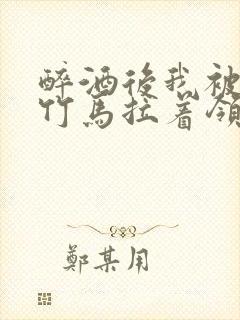 醉酒後我被
竹馬拉着領
鄭某用